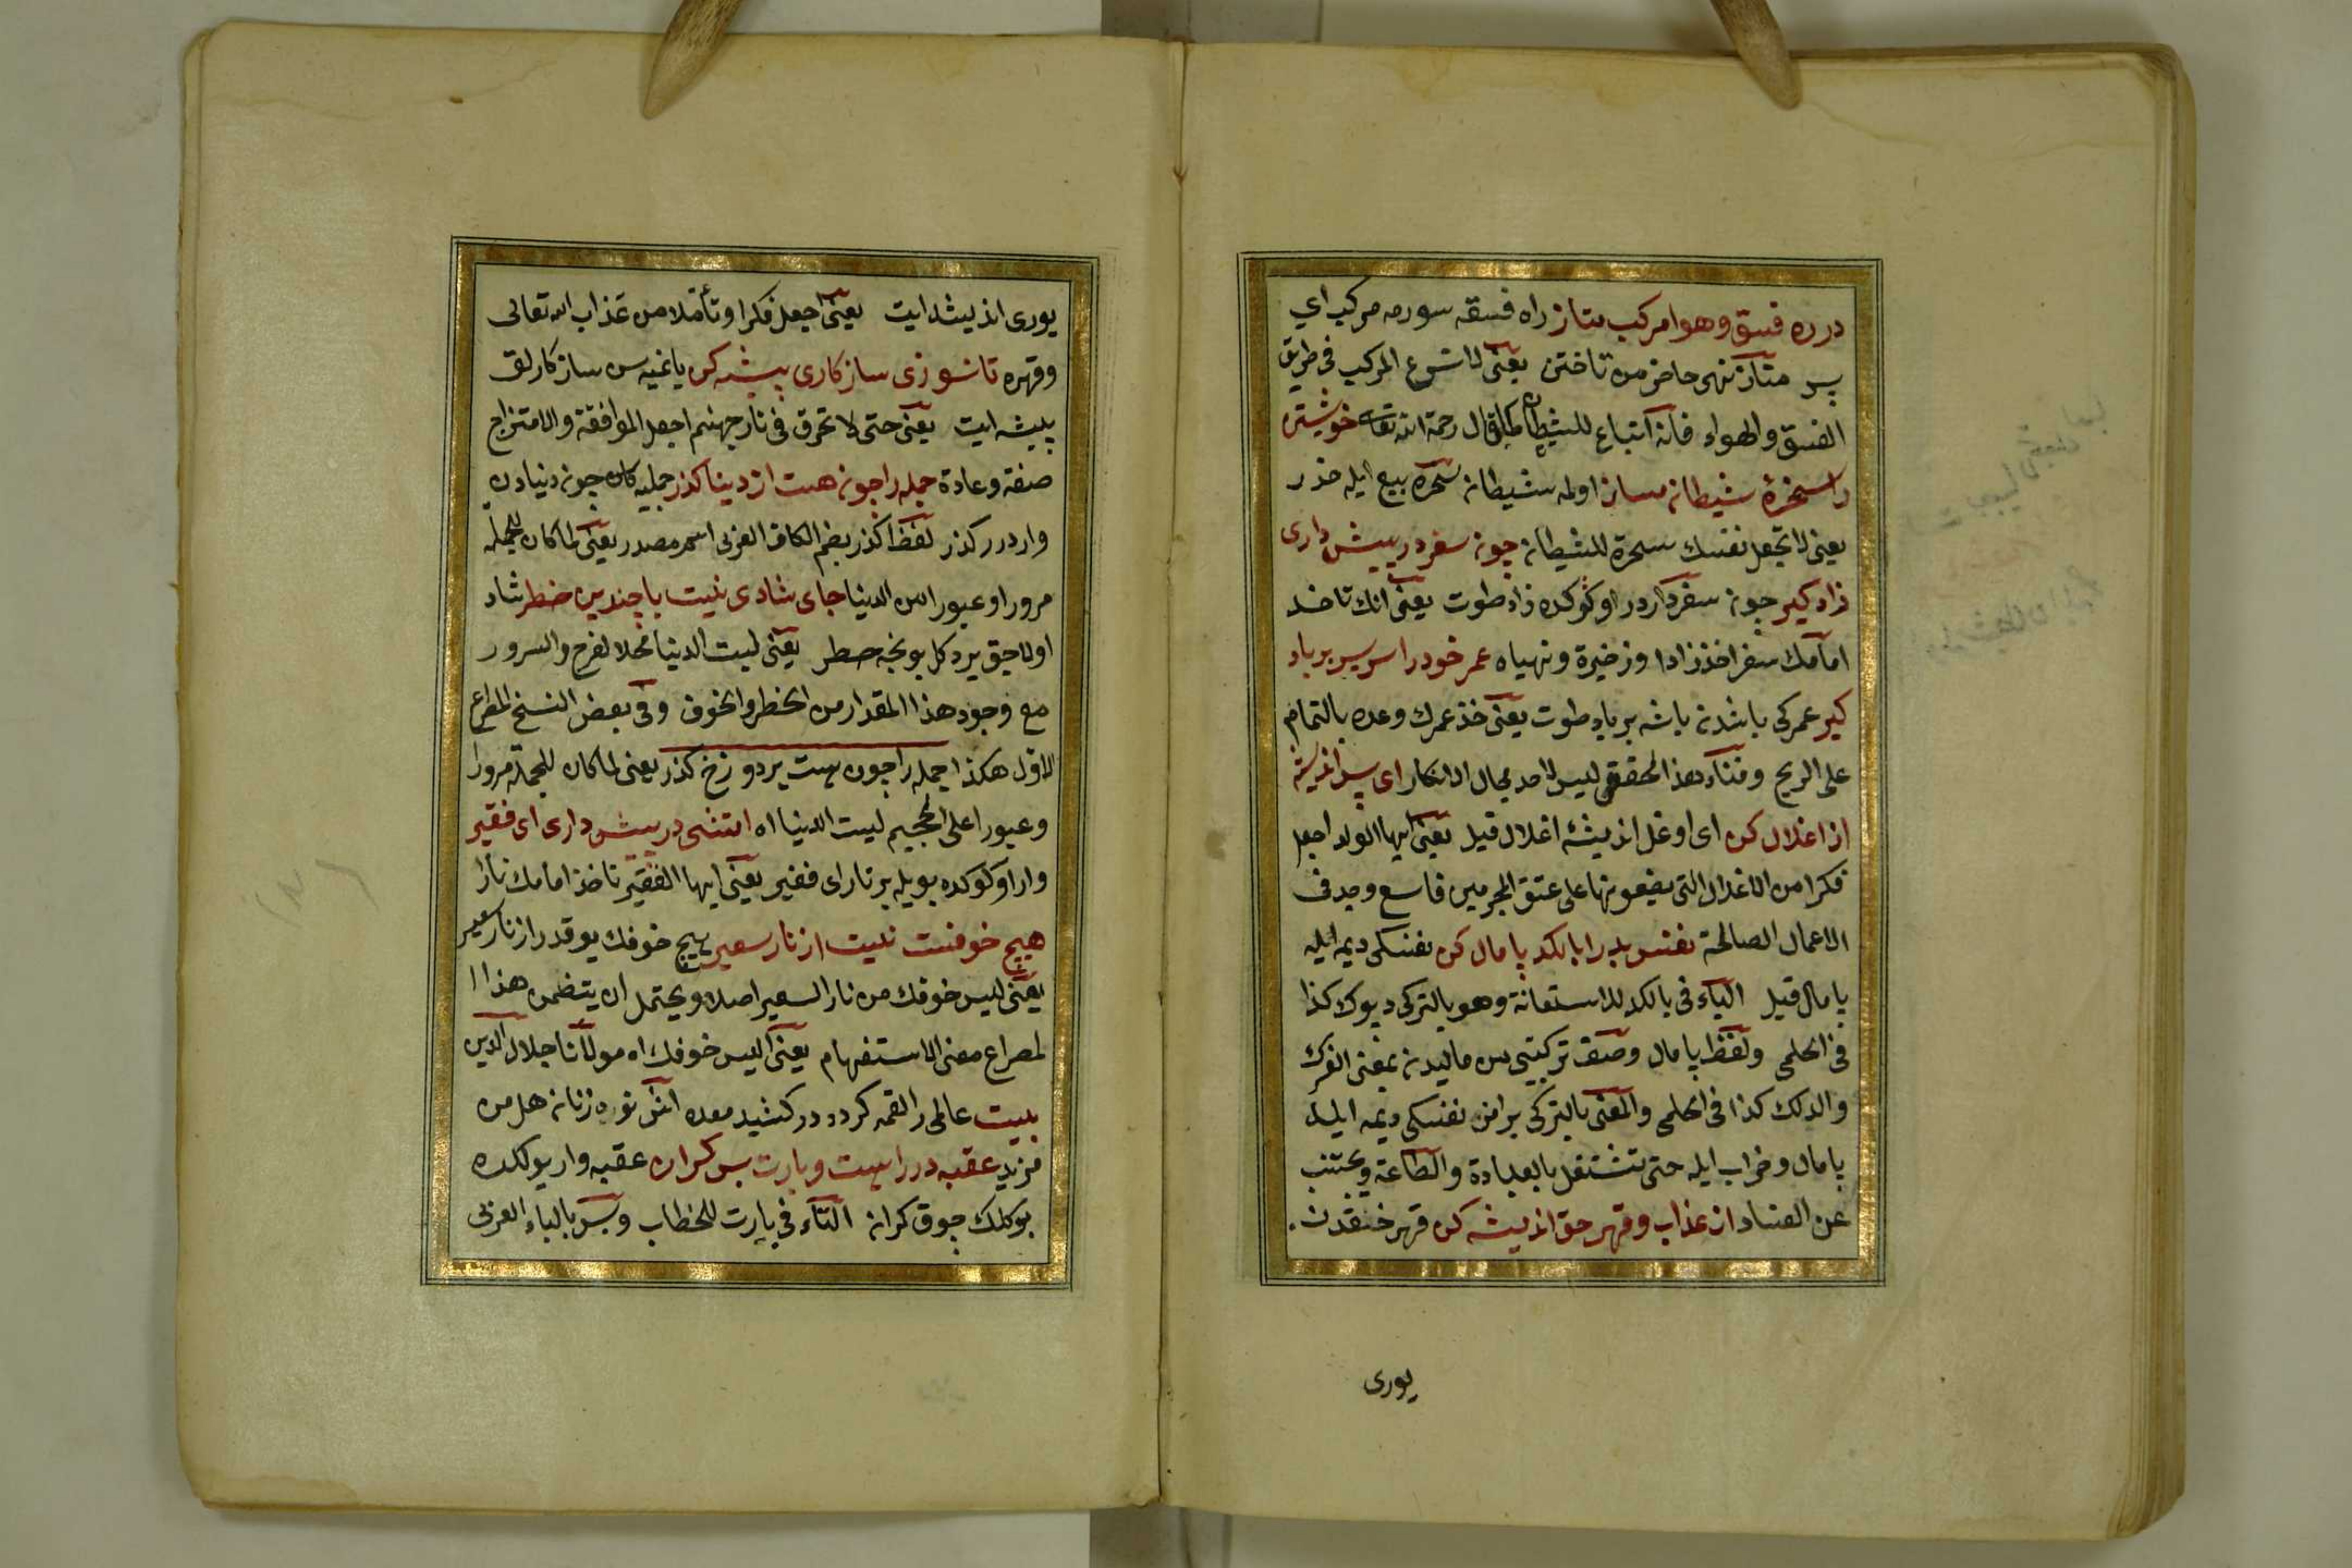 در ره فسق و هوا مركب متاز راه فسقه سورمه مركب اي
پسر متاز نهى حاضر من تاختن يعنى لا تسرع المركب فى طريق
الفسق والهواء فانه اتباع للشيطان كما قال رحمة الله تعالى خويشتن
را سخرۀ شيطان مساز اولمه شيطانه سخره بيع ايله حذر
يعنى لا تجعل نفسك سخرة للشيطان چون سفر در پيش دارى
زاد كير چون سفر دار در اوكوكده زاد طوت يعنى انك تاخذ
امامك سفرا خذ زادا وزخيرة وتهياه عمر خود را سربسر بر باد
كير عمركى باشدن باشه بر باد طوت يعنى خذ عمرك وعده بالتمام
على الريح وفناء هذا محقق ليس لاحد مجال الانكار اى پسر انديشه
از اغلال كن اى اوغل انديشۀ اغلال قيل يعنى ايها الولد اجعل
فكرا من الاغلال التى يضعونها على عنق المجرمين فاسع وجد فى
الاعمال الصالحة نفس بد را بالكد پامال كن نفسكى ديمه ايله
پامال قيل الباء فى بالكد للاستعانة وهو بالتركى ديوك كذا
فى الحلمى ولفظ پامال وصف تركيبى من ماليدن بمعنى الفرك
والدلك كذا فى الحلمى والمعنى بالتركى يرامز نفسكى ديمه ايله
پامال وخراب ايله حتى تشتغل بالعبادة والطاعة وتجتنب
عن الفساد از عذاب وقهر حق انديشه كن قهر حقدن
يورى
يورى انديشه ايت يعنى اجعل فكرا وتأملا من عذاب الله تعالى
وقهره تا نسوزى سازكارى پيشه كن ياغيه سن سازكارلق
پيشه ايت يعنى حتى لا تحرق فى نار جهنم اجعل الموافقة والامتزاج
صنفة وعادة جمله را چون هست از دينا كذر جمله كان چون دنيادن
واردر كذر لفظ كذر بضم الكاف العربى اسم مصدر يعنى لما كان للجملة
مرورا وعبورا من الدينا جاى شادى نيست با چندين خطر شاد
اولاجق ير دكل بونجه خطر يعنى ليست الدينا محلا لفرح والسرور
مع وجود هذا المقدار من الخطر والخوف وفى بعض النسخ المصراع
الاول هكذا جمله را چون هست بر دوزخ كذر يعنى لما كان للجملة مرورا
وعبورا على الجحيم ليست الدينا اه اتشى در پيش دارى اى فقير
وار اوكوكده بويله بر نار اى فقير يعنى ايها الفقير تاخذ امامك نارا
هيچ خوفت نيست از نار سعير هيچ خوفك يوقدر از نار سعير
يعنى ليس خوفك من نار السعير اصلا ويحتمل ان يتضمن هذا ا
لمصراع معنى الاستفهام يعنى أليس خوفك اه مولانا جلال الدين
بيت عالمى را لقمه كرد و دركشيد معده اش نعره زنان هل من
مزيد عقبه در راهست وبارت بس كران عقبه وار يولكده
يوكك چوق كران التاء فى بارت للخطاب وبس بالباء العربى